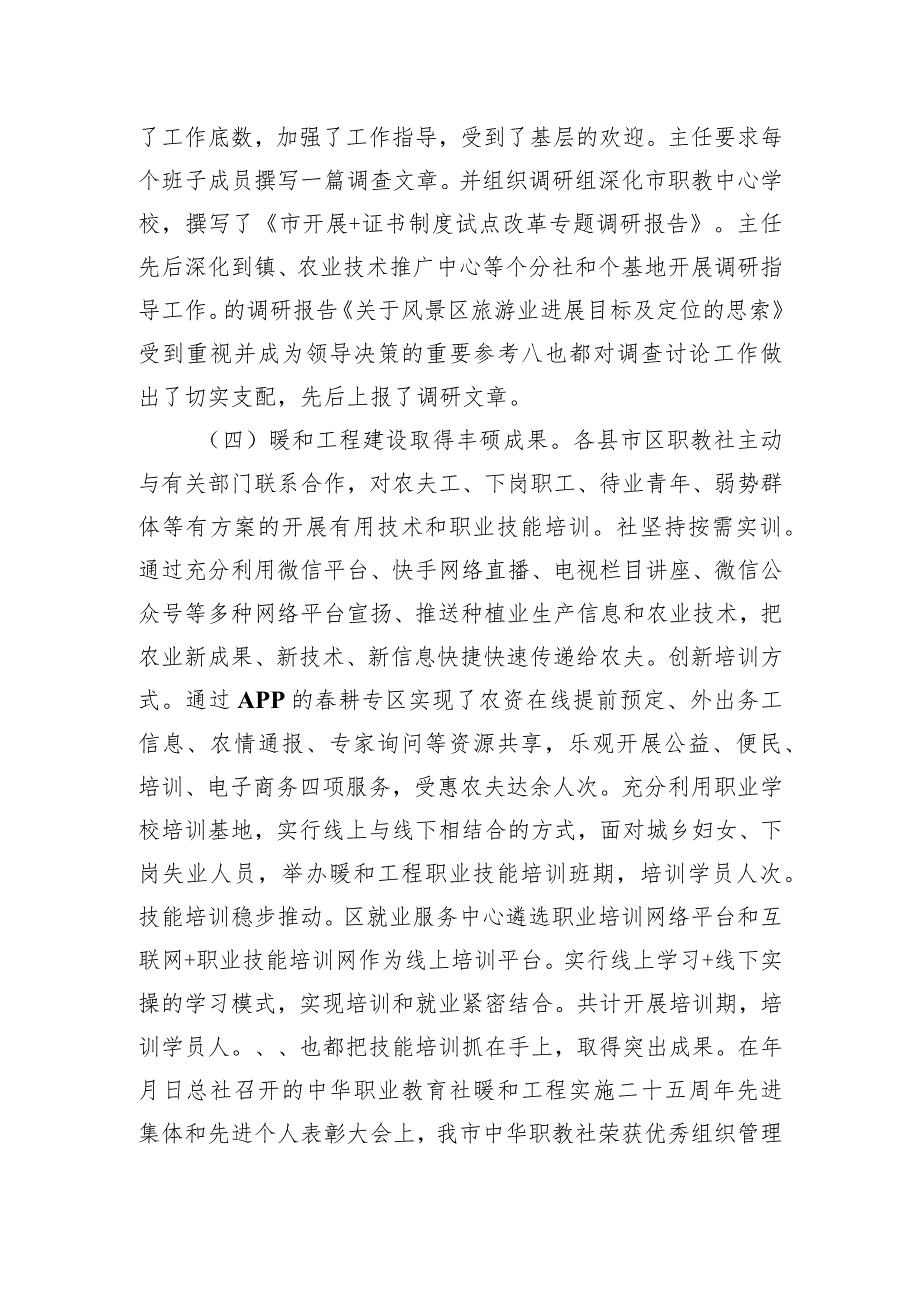 了工作底数，加强了工作指导，受到了基层的欢迎。主任要求每
个班子成员撰写一篇调查文章。并组织调研组深化市职教中心学
校，撰写了《市开展+证书制度试点改革专题调研报告》。主任
先后深化到镇、农业技术推广中心等个分社和个基地开展调研指
导工作。的调研报告《关于风景区旅游业进展目标及定位的思索》
受到重视并成为领导决策的重要参考八也都对调查讨论工作做
出了切实支配，先后上报了调研文章。
（四）暖和工程建设取得丰硕成果。各县市区职教社主动
与有关部门联系合作，对农夫工、下岗职工、待业青年、弱势群
体等有方案的开展有用技术和职业技能培训。社坚持按需实训。
通过充分利用微信平台、快手网络直播、电视栏目讲座、微信公
众号等多种网络平台宣扬、推送种植业生产信息和农业技术，把
农业新成果、新技术、新信息快捷快速传递给农夫。创新培训方
式。通过 APP 的春耕专区实现了农资在线提前预定、外出务工
信息、农情通报、专家询问等资源共享，乐观开展公益、便民、
培训、电子商务四项服务，受惠农夫达余人次。充分利用职业学
校培训基地，实行线上与线下相结合的方式，面对城乡妇女、下
岗失业人员，举办暖和工程职业技能培训班期，培训学员人次。
技能培训稳步推动。区就业服务中心遴选职业培训网络平台和互
联网+职业技能培训网作为线上培训平台。实行线上学习+线下实
操的学习模式，实现培训和就业紧密结合。共计开展培训期，培
训学员人。、、、也都把技能培训抓在手上，取得突出成果。在年
月日总社召开的中华职业教育社暖和工程实施二十五周年先进
集体和先进个人表彰大会上，我市中华职教社荣获优秀组织管理